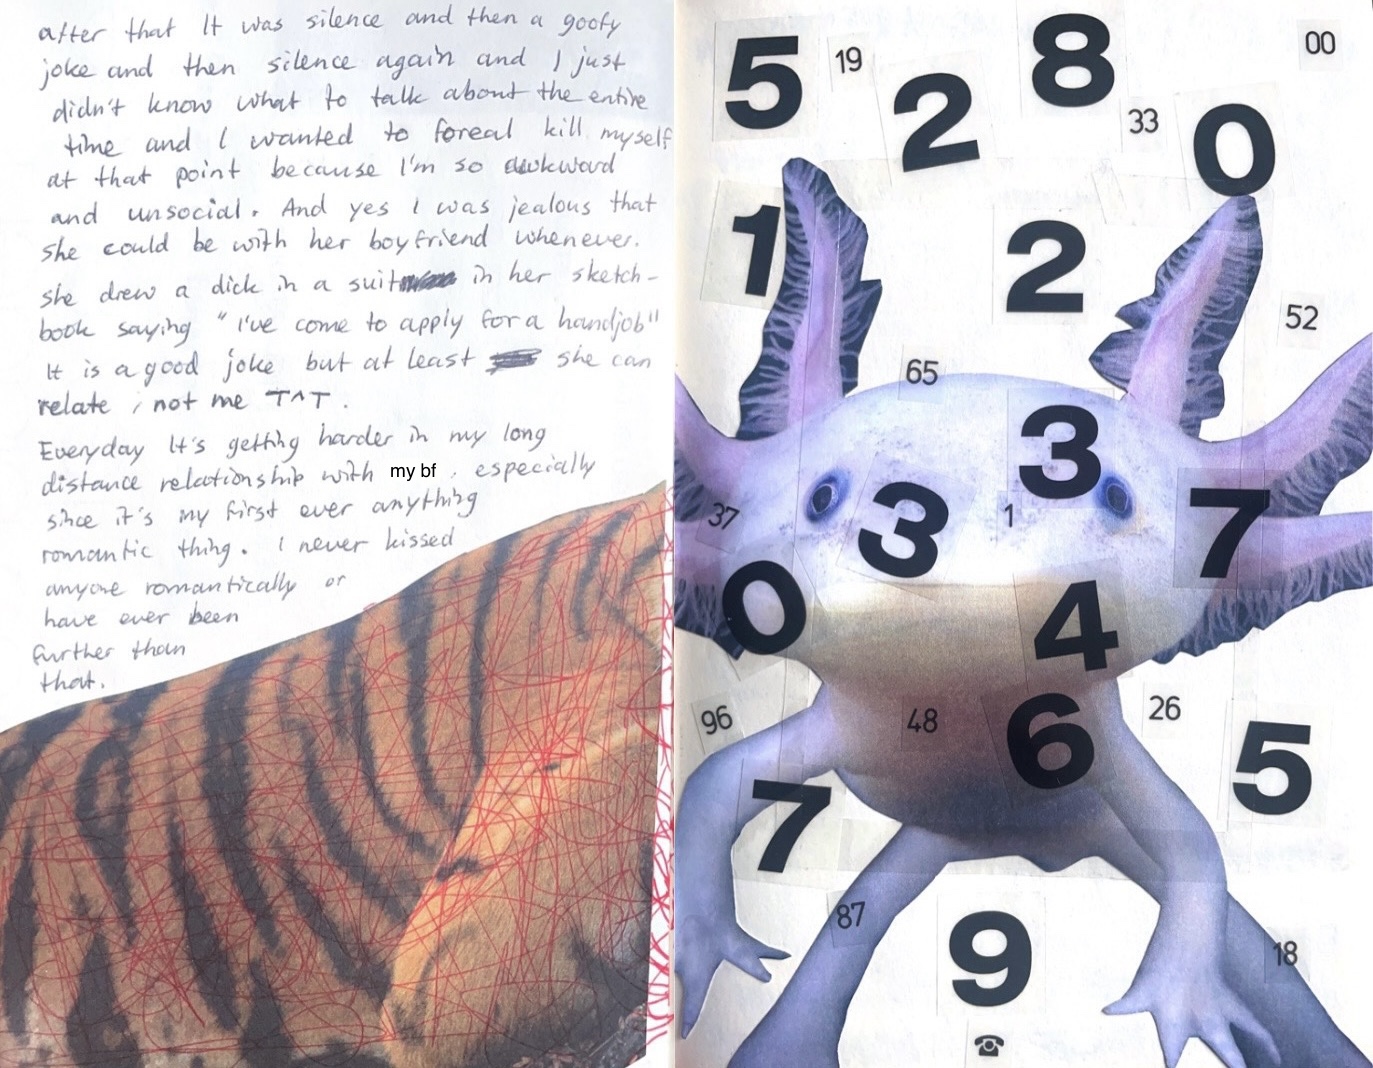 after that It was silence and then a goofy
joke and then silence again and I just
didn't know what to talk about the entire
time and I wanted to foreal kill myself
at that point because I'm so awkward
and unsocial. And yes I was jealous that
she could be with her boyfriend whenever.
She drew a dick in a suit in her sketch-
book saying "I've come to apply for a handjob"
It is a good joke but at least she can
relate, not me T^T.
Everyday It's getting harder in my long
distance relationship with my bf, especially
since it's my first ever anything
romantic thing. I never kissed
anyone romantically or
have ever been
further than
that.
5 19 2 8 00
33 0
1 2
52
65
3
37 3 1 7
0 4
96 48 6 26 5
7
87 9 18